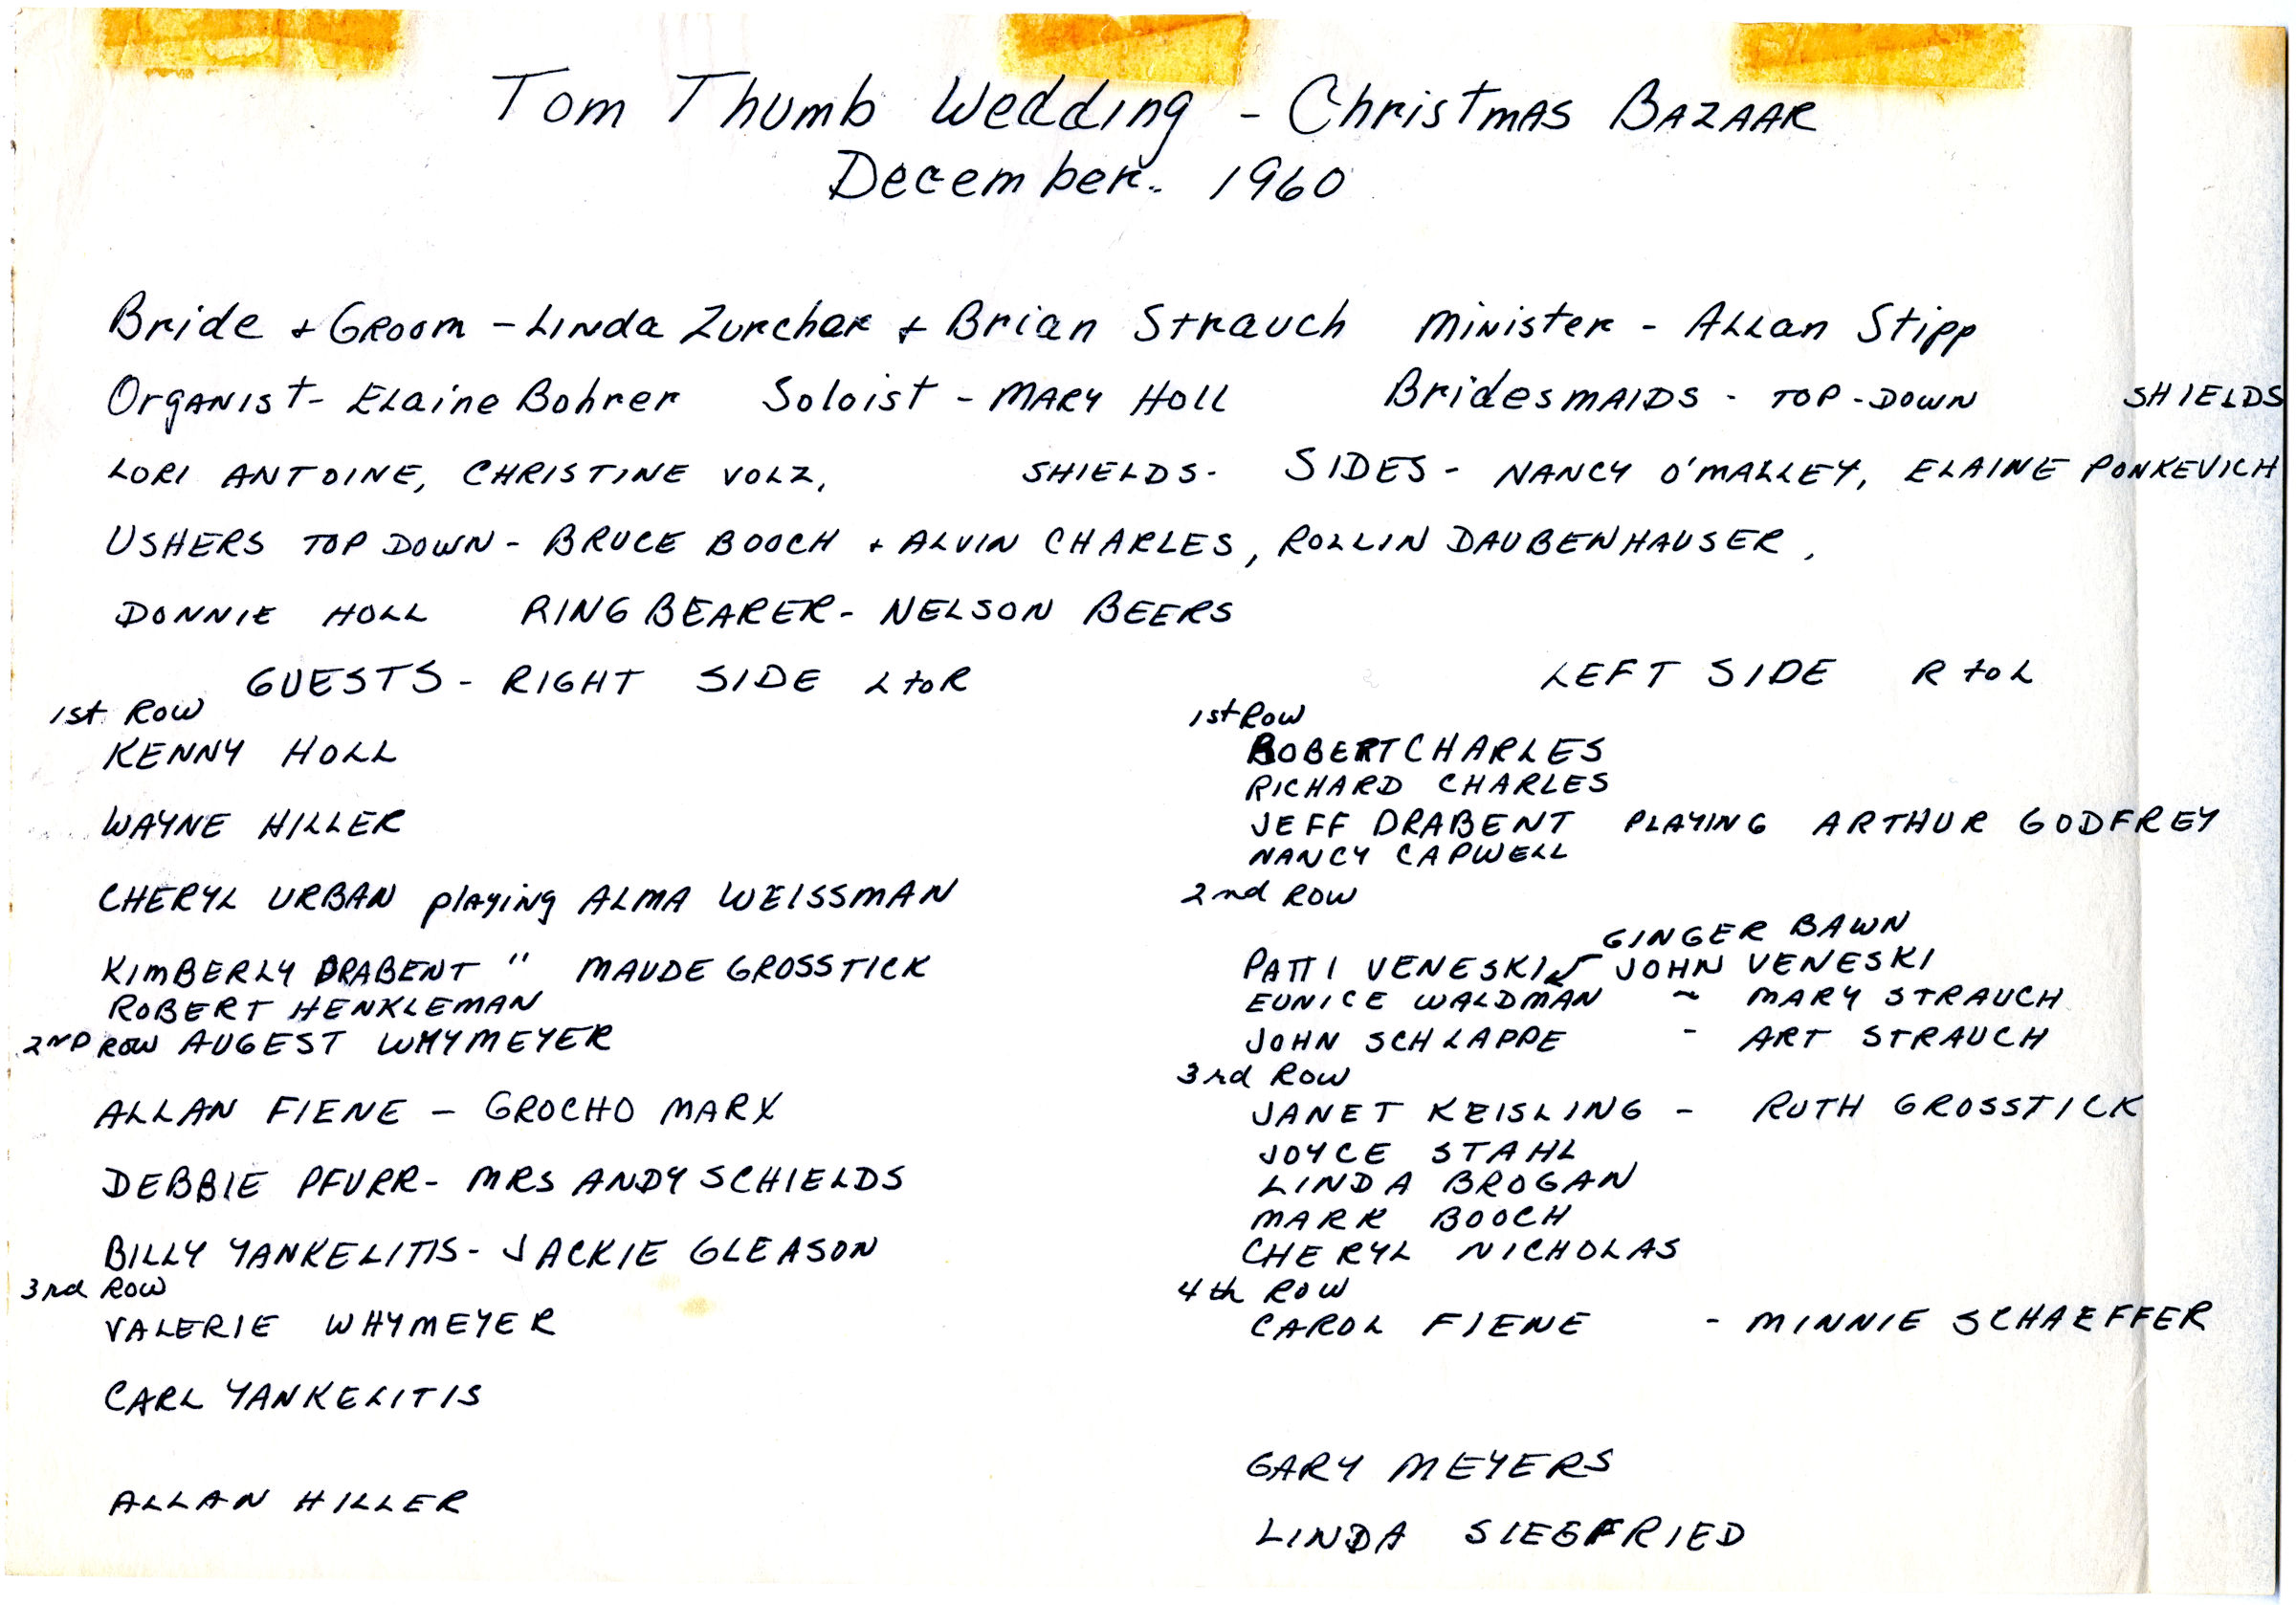 Tom Thumb Wedding - Christmas BAZAAR
December. 1960
Bride + Groom - Linda Zurcher + Brian Strauch Minister - Allan Stipp
Organist - Elaine Bohrer Soloist - MARY Holl BridesmAIDS - TOP-DOWN SHIELDS
LORI ANTOINE, CHRISTINE VOLZ, SHIELDS- SIDES - NANCY O'MALLEY, ELAINE PONKEVICH
USHERS TOP DOWN - BRUCE BOOCH + ALVIN CHARLES, ROLLIN DAUBENHAUSER,
DONNIE HOLL RING BEARER - NELSON BEERS
GUESTS - RIGHT SIDE L to R
1st Row
KENNY HOLL
WAYNE HILLER
CHERYL URBAN playing ALMA WEISSMAN
KIMBERLY DRABENT " MAUDE GROSSTICK
ROBERT HENKLEMAN
2ND ROW AUGEST WHYMEYER
ALLAN FIENE - GROCHO MARX
DEBBIE PFURR - MRS ANDY SCHIELDS
BILLY YANKELITIS - JACKIE GLEASON
3rd Row
VALERIE WHYMEYER
CARL YANKELITIS
ALLAN HILLER
LEFT SIDE R to L
1st Row
ROBERT CHARLES
RICHARD CHARLES
JEFF DRABENT PLAYING ARTHUR GODFREY
NANCY CAPWELL
2nd Row
GINGER BAWN
PATTI VENESKI JOHN VENESKI
EUNICE WALDMAN ~ MARY STRAUCH
JOHN SCHLAPPE - ART STRAUCH
3rd Row
JANET KEISLING - RUTH GROSSTICK
JOYCE STAHL
LINDA BROGAN
MARK BOOCH
CHERYL NICHOLAS
4th Row
CAROL FIENE - MINNIE SCHAEFFER
GARY MEYERS
LINDA SIEGFRIED